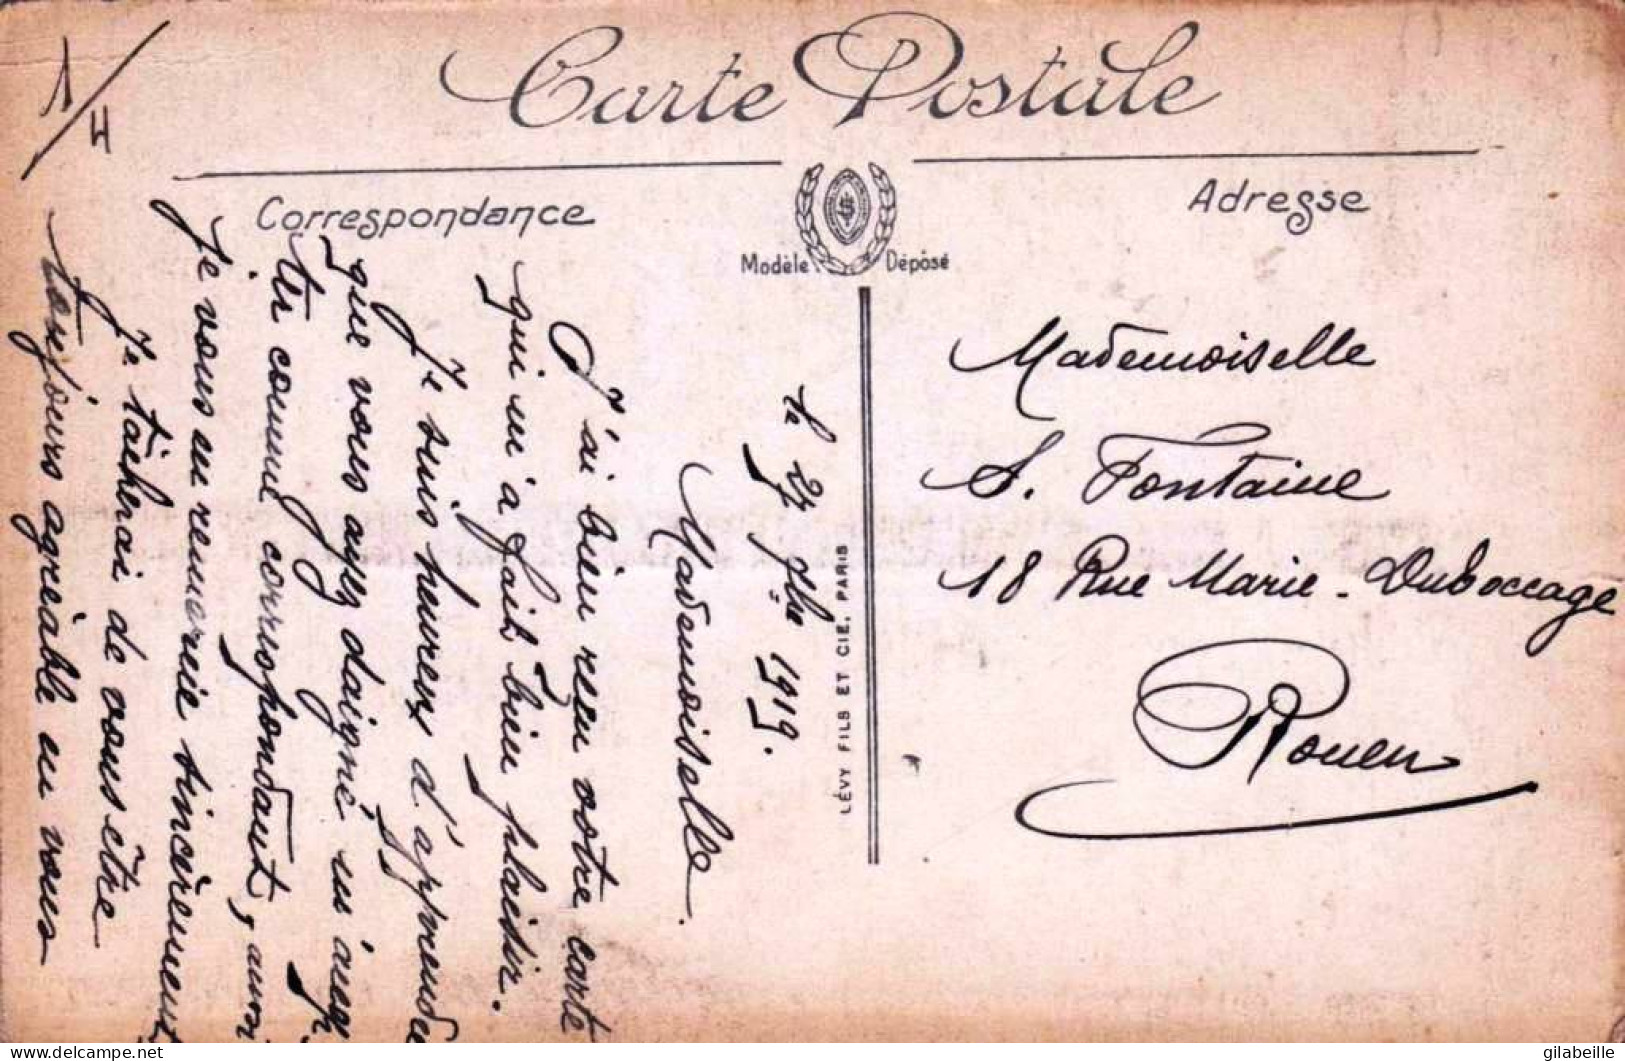 1/4
Carte Postale
Correspondance
Adresse
Modèle Déposé
LÉVY FILS ET CIE, PARIS
Le 27 9bre 1919.
Mademoiselle.
J'ai bien reçu votre carte
qui m'a fait bien plaisir.
Je suis heureux d'apprendre
que vous ayez daigné m'accep-
ter comme correspondant, aussi
Je vous en remercie sincèrement
Je tâcherai de vous être
toujours agréable en vous
Mademoiselle
S. Fontaine
18 Rue Marie-Duboccage
Rouen
gilabeille